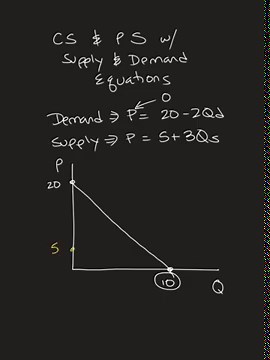 CS & PS w/
Supply & Demand
Equations
0
Demand ⇒ P = 20 - 2Qd
Supply ⇒ P = 5 + 3Qs
P
20
5
10
Q